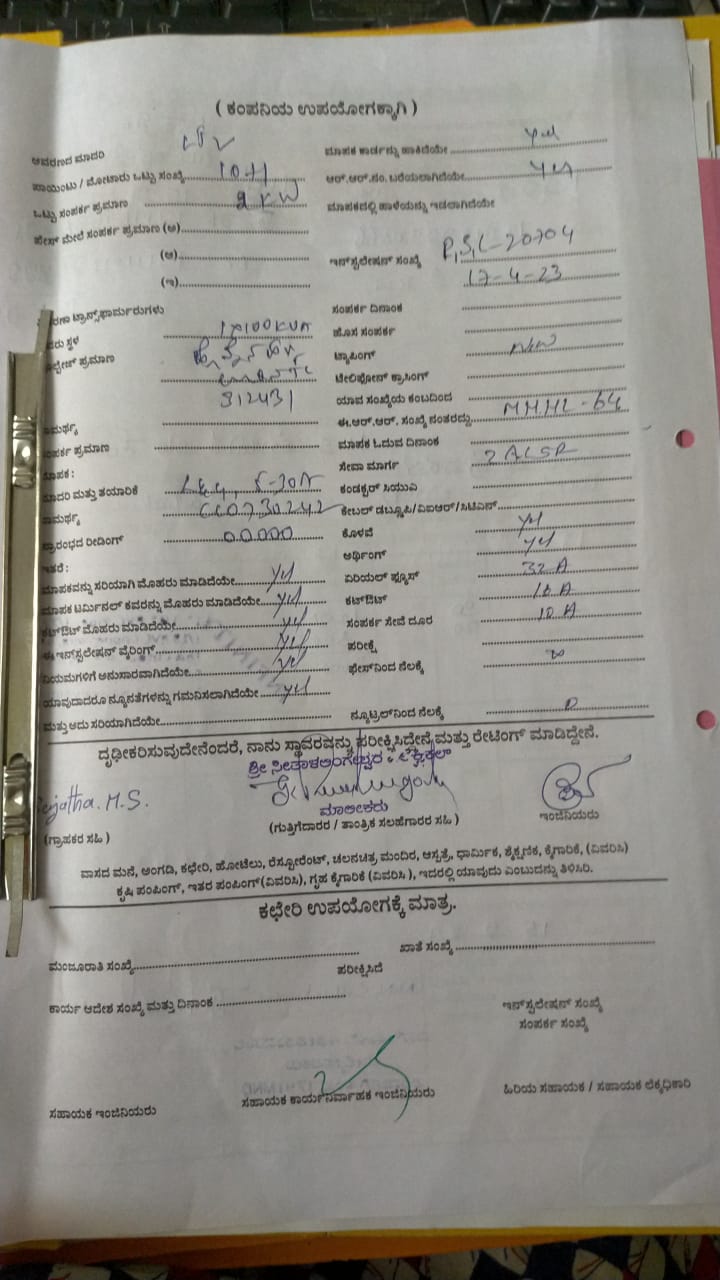 ( ಕಂಪನಿಯ ಉಪಯೋಗಕ್ಕಾಗಿ )
ಆವರಣದ ಮಾದರಿ
ಮಾಪಕ ಕಾರ್ಡನ್ನು ಹಾಕಿದೆಯೇ yes
ಪಾಯಿಂಟು / ಮೋಟಾರು ಒಟ್ಟು ಸಂಖ್ಯೆ 10+1
ಆರ್.ಆರ್.ನಂ. ಬರೆಯಲಾಗಿದೆಯೇ yes
ಒಟ್ಟು ಸಂಪರ್ಕ ಪ್ರಮಾಣ 2 KW
ಮಾಪಕದಲ್ಲಿ ಹಾಳೆಯನ್ನು ಇಡಲಾಗಿದೆಯೇ
ಫೇಸ್ ಮೇಲೆ ಸಂಪರ್ಕ ಪ್ರಮಾಣ (ಅ)
(ಆ)
ಇನ್‌ಸ್ಟಲೇಷನ್ ಸಂಖ್ಯೆ P,S,L-20704
(ಇ)
17-4-23
ರಣಾ ಟ್ರಾನ್ಸ್‌ಫಾರ್ಮರುಗಳು
ಸಂಪರ್ಕ ದಿನಾಂಕ
ಸ್ಥಳ 1x100KVA
ಹೊಸ ಸಂಪರ್ಕ
ಪ್ರಮಾಣ
ಟ್ಯಾಪಿಂಗ್ New
ಟೆಲಿಫೋನ್ ಕ್ರಾಸಿಂಗ್
312431
ಯಾವ ಸಂಖ್ಯೆಯ ಕಂಬದಿಂದ
ಈ.ಆರ್.ಆರ್. ಸಂಖ್ಯೆ ನಂತರದ್ದು MMHL-64
ಸಂಪರ್ಕ ಪ್ರಮಾಣ
ಮಾಪಕ ಓದುವ ದಿನಾಂಕ
ಸೇವಾ ಮಾರ್ಗ 2ACSR
ಮಾದರಿ ಮತ್ತು ತಯಾರಿಕೆ L&G, 5-30A
ಕಂಡಕ್ಟರ್ ಸಿಯುಎ
ಸಾಮರ್ಥ್ಯ
ಕೇಬಲ್ ಡಬ್ಲೂಪಿ/ವಿಐಆರ್/ಸಿಟಿಎಸ್
ಪ್ರಾರಂಭದ ರೀಡಿಂಗ್ 00000
ಕೊಳವೆ yes
ಇತರೆ :
ಅರ್ಥಿಂಗ್ yes
ಮಾಪಕವನ್ನು ಸರಿಯಾಗಿ ಮೊಹರು ಮಾಡಿದೆಯೇ yes
ಏರಿಯಲ್ ಫ್ಯೂಸ್ 32 A
ಮಾಪಕ ಟರ್ಮಿನಲ್ ಕವರನ್ನು ಮೊಹರು ಮಾಡಿದೆಯೇ yes
ಕಟ್‌ಔಟ್
ಕಟ್‌ಔಟ್ ಮೊಹರು ಮಾಡಿದೆಯೇ yes
ಸಂಪರ್ಕ ಸೇವೆ ದೂರ
ಈ ಇನ್‌ಸ್ಟಲೇಷನ್ ವೈರಿಂಗ್ yes
ಪರೀಕ್ಷೆ
ನಿಯಮಗಳಿಗೆ ಅನುಸಾರವಾಗಿದೆಯೇ yes
ಫೇಸ್‌ನಿಂದ ನೆಲಕ್ಕೆ ∞
ಯಾವುದಾದರೂ ನ್ಯೂನತೆಗಳನ್ನು ಗಮನಿಸಲಾಗಿದೆಯೇ yes
ಮತ್ತು ಅದು ಸರಿಯಾಗಿದೆಯೇ
ನ್ಯೂಟ್ರಲ್‌ನಿಂದ ನೆಲಕ್ಕೆ
ದೃಢೀಕರಿಸುವುದೇನೆಂದರೆ, ನಾನು ಸ್ಥಾವರವನ್ನು ಪರೀಕ್ಷಿಸಿದ್ದೇನೆ ಮತ್ತು ರೇಟಿಂಗ್ ಮಾಡಿದ್ದೇನೆ.
ಮಾಲೀಕರು
ಇಂಜಿನಿಯರು
(ಗ್ರಾಹಕರ ಸಹಿ )
(ಗುತ್ತಿಗೆದಾರರ / ತಾಂತ್ರಿಕ ಸಲಹೆಗಾರರ ಸಹಿ )
ವಾಸದ ಮನೆ, ಅಂಗಡಿ, ಕಛೇರಿ, ಹೋಟೆಲು, ರೆಸ್ಟೋರೆಂಟ್, ಚಲನಚಿತ್ರ, ಮಂದಿರ, ಆಸ್ಪತ್ರೆ, ಧಾರ್ಮಿಕ, ಶೈಕ್ಷಣಿಕ, ಕೈಗಾರಿಕೆ, (ವಿವರಿಸಿ)
ಕೃಷಿ ಪಂಪಿಂಗ್, ಇತರ ಪಂಪಿಂಗ್ (ವಿವರಿಸಿ), ಗೃಹ ಕೈಗಾರಿಕೆ (ವಿವರಿಸಿ ), ಇದರಲ್ಲಿ ಯಾವುದು ಎಂಬುದನ್ನು ತಿಳಿಸಿರಿ.
ಕಛೇರಿ ಉಪಯೋಗಕ್ಕೆ ಮಾತ್ರ.
ಮಂಜೂರಾತಿ ಸಂಖ್ಯೆ
ಖಾತೆ ಸಂಖ್ಯೆ
ಪರೀಕ್ಷಿಸಿದೆ
ಕಾರ್ಯ ಆದೇಶ ಸಂಖ್ಯೆ ಮತ್ತು ದಿನಾಂಕ
ಇನ್‌ಸ್ಟಲೇಷನ್ ಸಂಖ್ಯೆ
ಸಂಪರ್ಕ ಸಂಖ್ಯೆ
ಸಹಾಯಕ ಇಂಜಿನಿಯರು
ಸಹಾಯಕ ಕಾರ್ಯನಿರ್ವಾಹಕ ಇಂಜಿನಿಯರು
ಹಿರಿಯ ಸಹಾಯಕ / ಸಹಾಯಕ ಲೆಕ್ಕಧಿಕಾರಿ